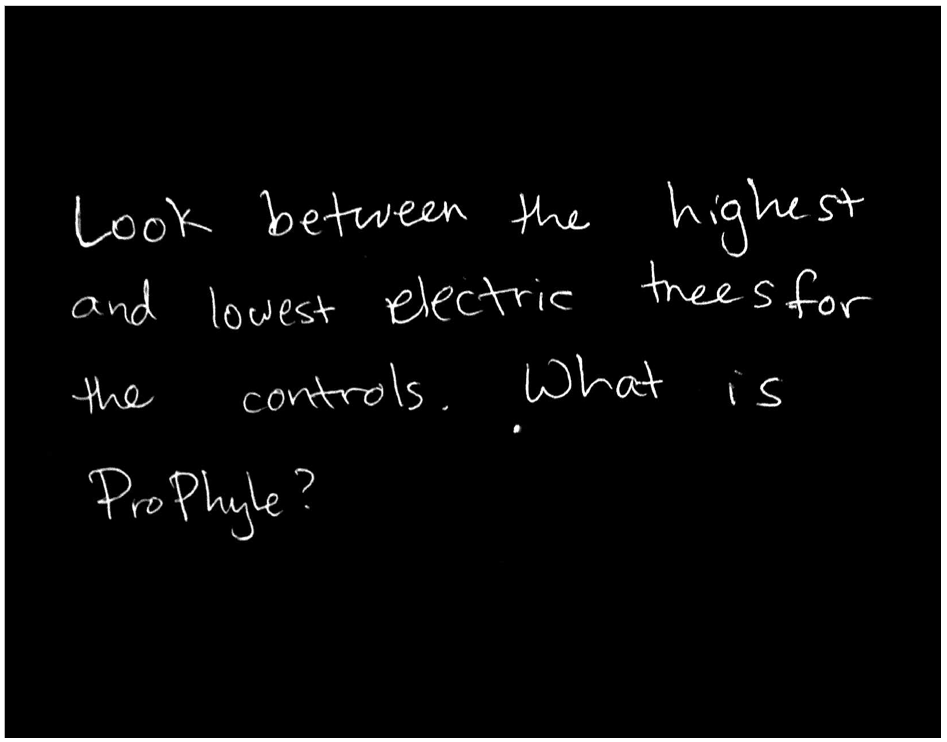 Look between the highest
and lowest electric trees for
the controls. What is
ProPhyle?